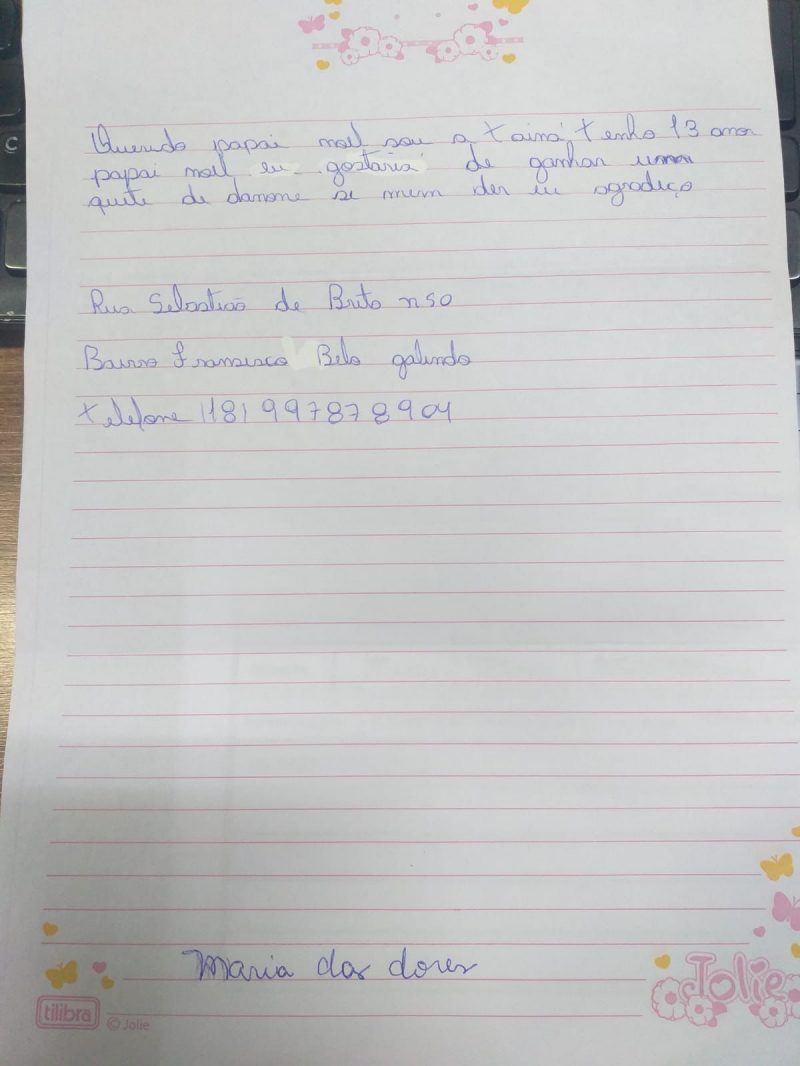 Querido papai noel sou a tainá tenho 13 anos
papai noel eu gostaria de ganhar uma
quite de danone se mim der eu agradeço
Rua Sebastião de Brito n 50
Bairro Francisco Belo galindo
telefone (18) 997878904
Maria das dores
Jolie
tilibra
© Jolie